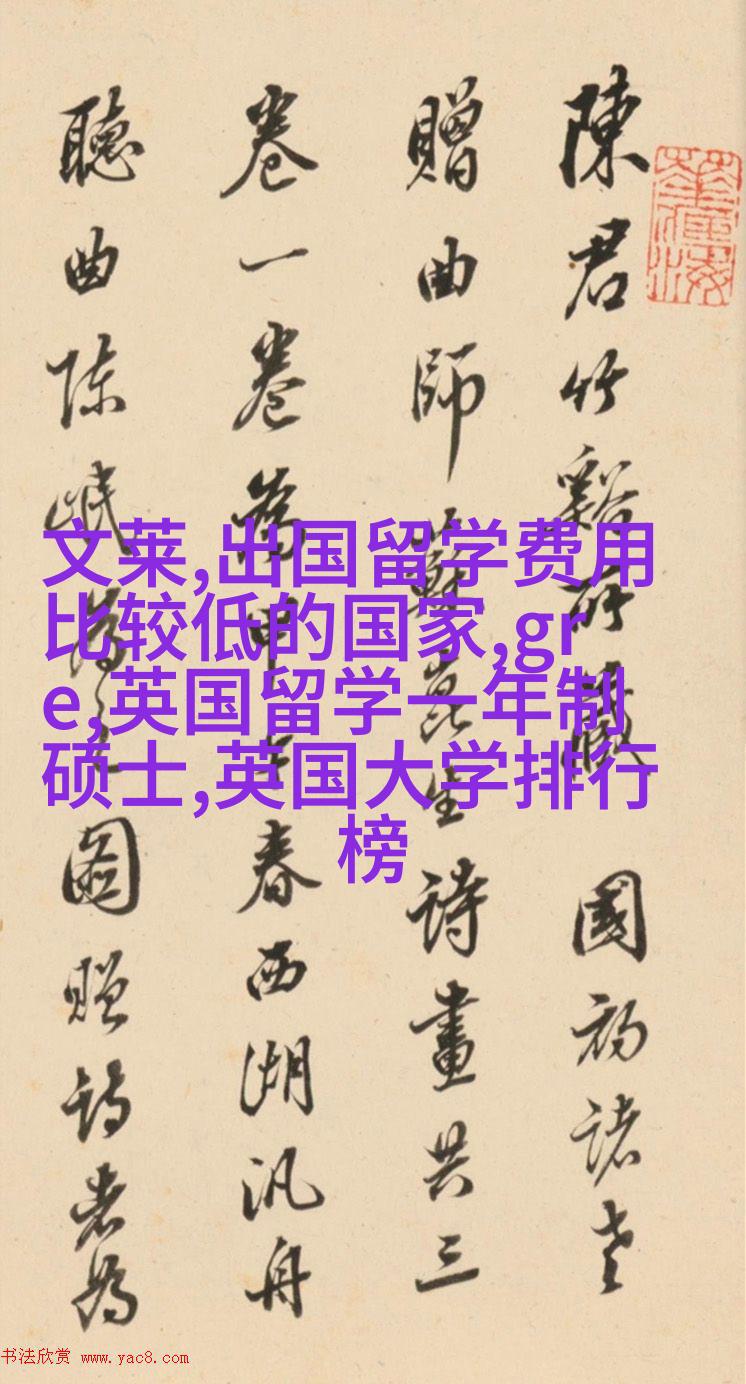 陳君竹谿所藏 國初諸老
贈曲師蘇崑生詩畫共三
卷一卷為甲春西湖汎舟
聽曲陈岷為圖贈詩者為
文莱,出国留学费用
比较低的国家,gr
e,英国留学一年制
硕士,英国大学排行
榜
书法欣赏 www.yac8.com